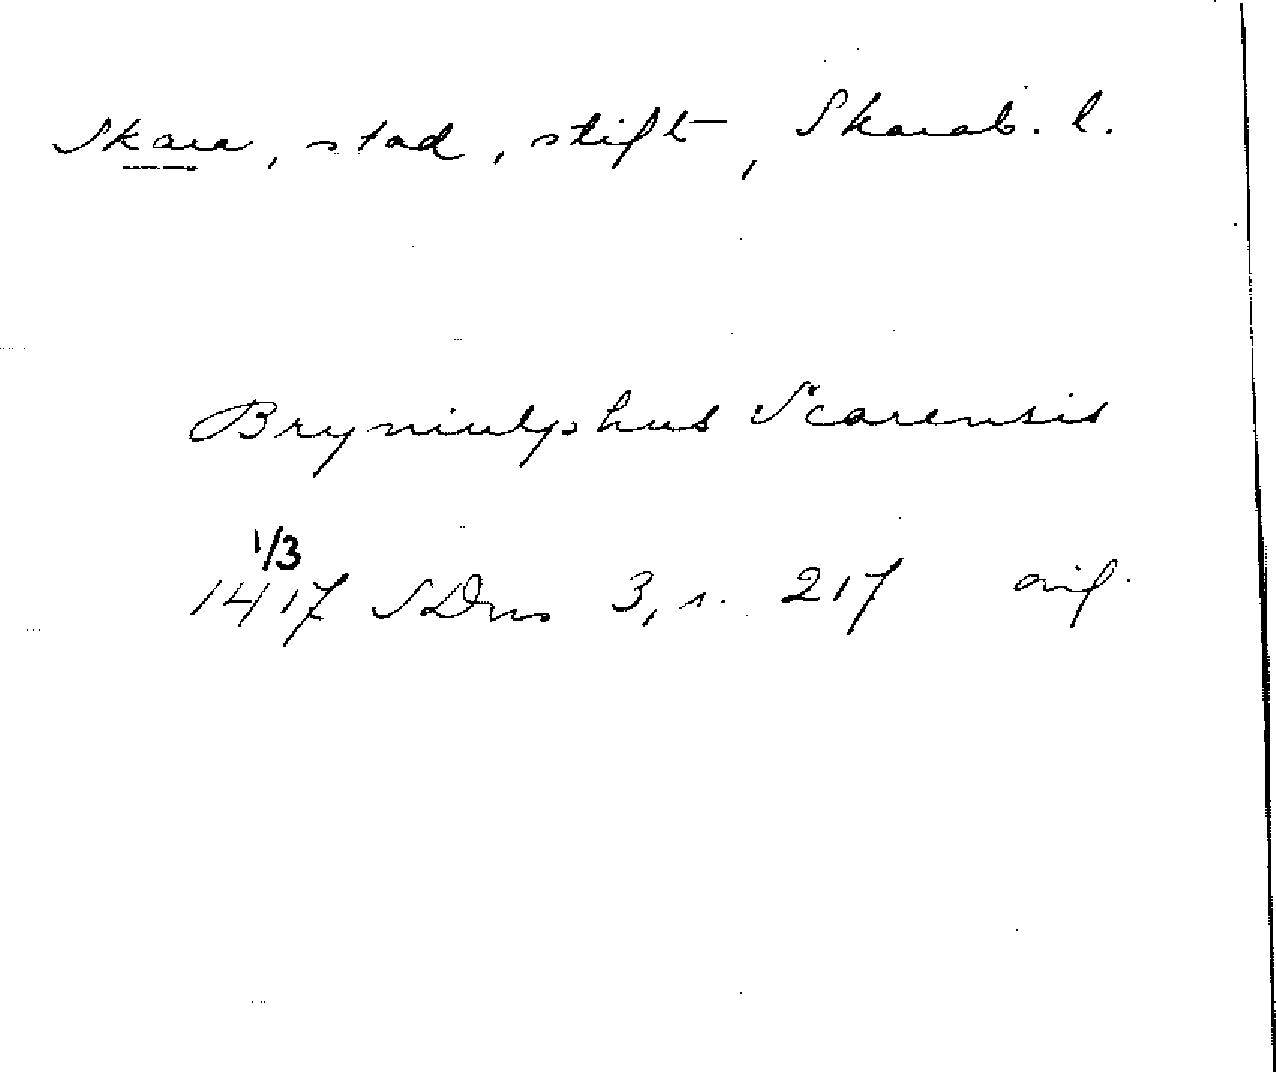 Skara, stad, stift, Skarab. l.
Bryniulphus Scarensis
1/3
1417 SDns 3, s. 217 avsl.